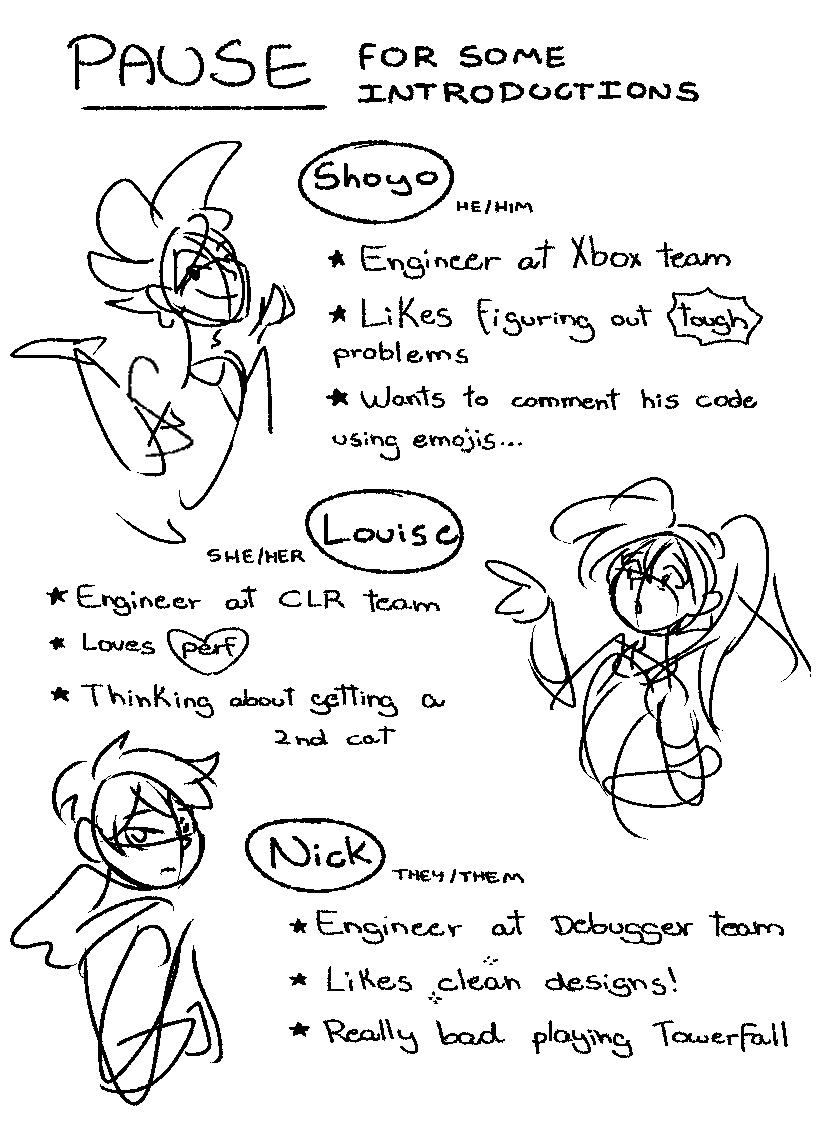 PAUSE FOR SOME
INTRODUCTIONS
Shoyo
HE/HIM
★ Engineer at Xbox team
★ Likes figuring out tough
problems
★ Wants to comment his code
using emojis...
Louise
SHE/HER
★ Engineer at CLR team
★ Loves perf
★ Thinking about getting a
2nd cat
Nick
THEY/THEM
★ Engineer at Debugger team
★ Likes clean designs!
★ Really bad playing Towerfall